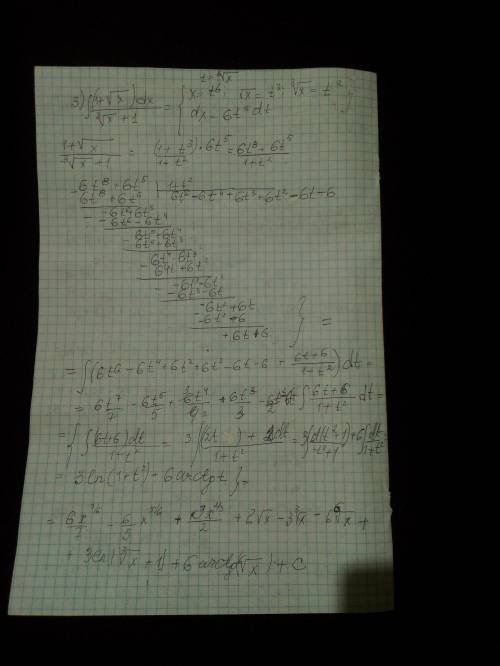 t = ⁶√x
3) ∫ (1+√x)dx / (∛x + 1) = { x = t⁶; √x = t³; ∛x = t²
dx = 6t⁵dt
(1+√x) / (∛x + 1) = (1+t³)·6t⁵ / (1+t²) = (6t⁸+6t⁵) / (1+t²)
6t⁸+6t⁵ | 1+t²
6t⁸+6t⁶ | 6t⁶-6t⁴+6t³+6t²-6t-6
-6t⁶+6t⁵
-6t⁶-6t⁴
6t⁵+6t⁴
6t⁵+6t³
6t⁴-6t³
6t⁴+6t²
-6t³-6t²
-6t³-6t
-6t²+6t
-6t²-6
+6t+6 } =
= ∫ (6t⁶-6t⁴+6t³+6t²-6t-6 + (6t+6)/(1+t²)) dt =
= 6t⁷/7 - 6t⁵/5 + 6t⁴/4 + 6t³/3 - 6t²/2 - 6t + ∫ (6t+6)/(1+t²) dt =
= { ∫ (6t+6)dt / (1+t²) = 3 ∫ (2t) + 2dt / (1+t²) = 3 ∫ d(t²+1)/(t²+1) + 6 ∫ dt/(1+t²) =
= 3ln(1+t²) - 6arctg t } =
= 6x^(7/6)/7 - 6/5 x^(5/6) + 3x^(2/3)/2 + 2√x - 3∛x - 6⁶√x +
+ 3ln(∛x + 1) + 6arctg(⁶√x) + C